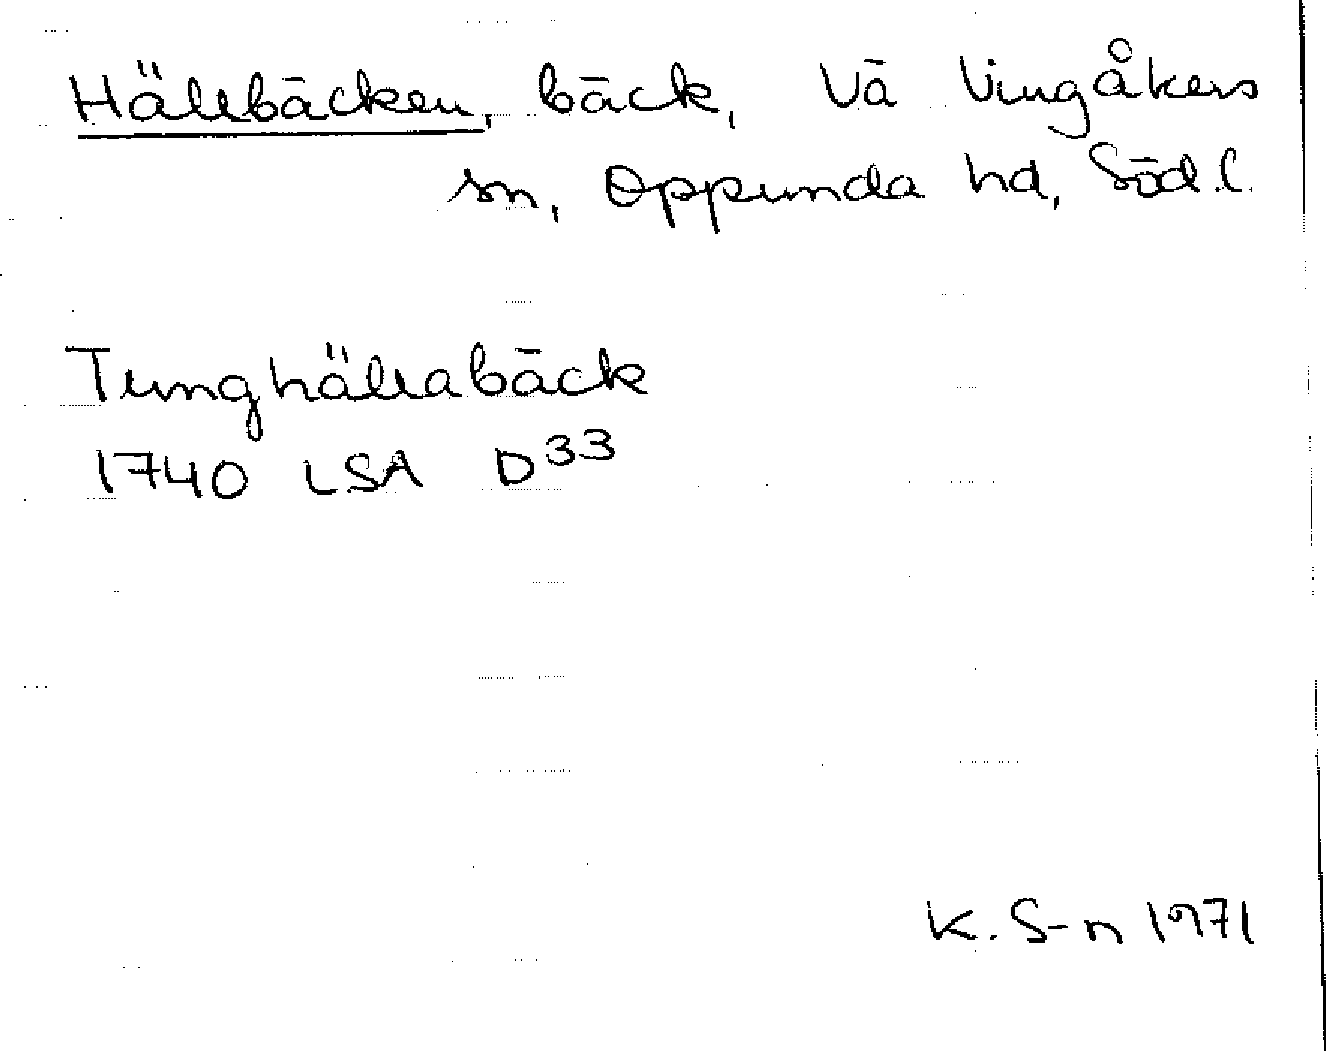 Hällbäcken, bäck, Vä Vingåkers
sn, Oppunda hd, Södl.
Tunghällabäck
1740 LSA D33
K. S-n 1971